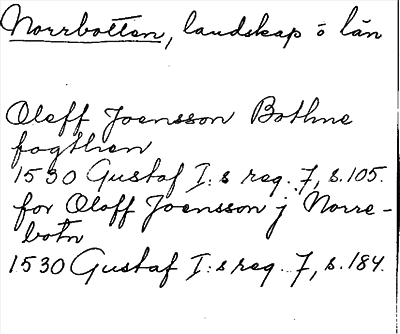 Norrbotten, landskap o län
Oleff Joensson Bothne
fogthen
1530 Gustaf I:s reg. 7, s. 105.
for Oloff Joensson j Norre-
botn
1530 Gustaf I:s reg. 7, s. 184.